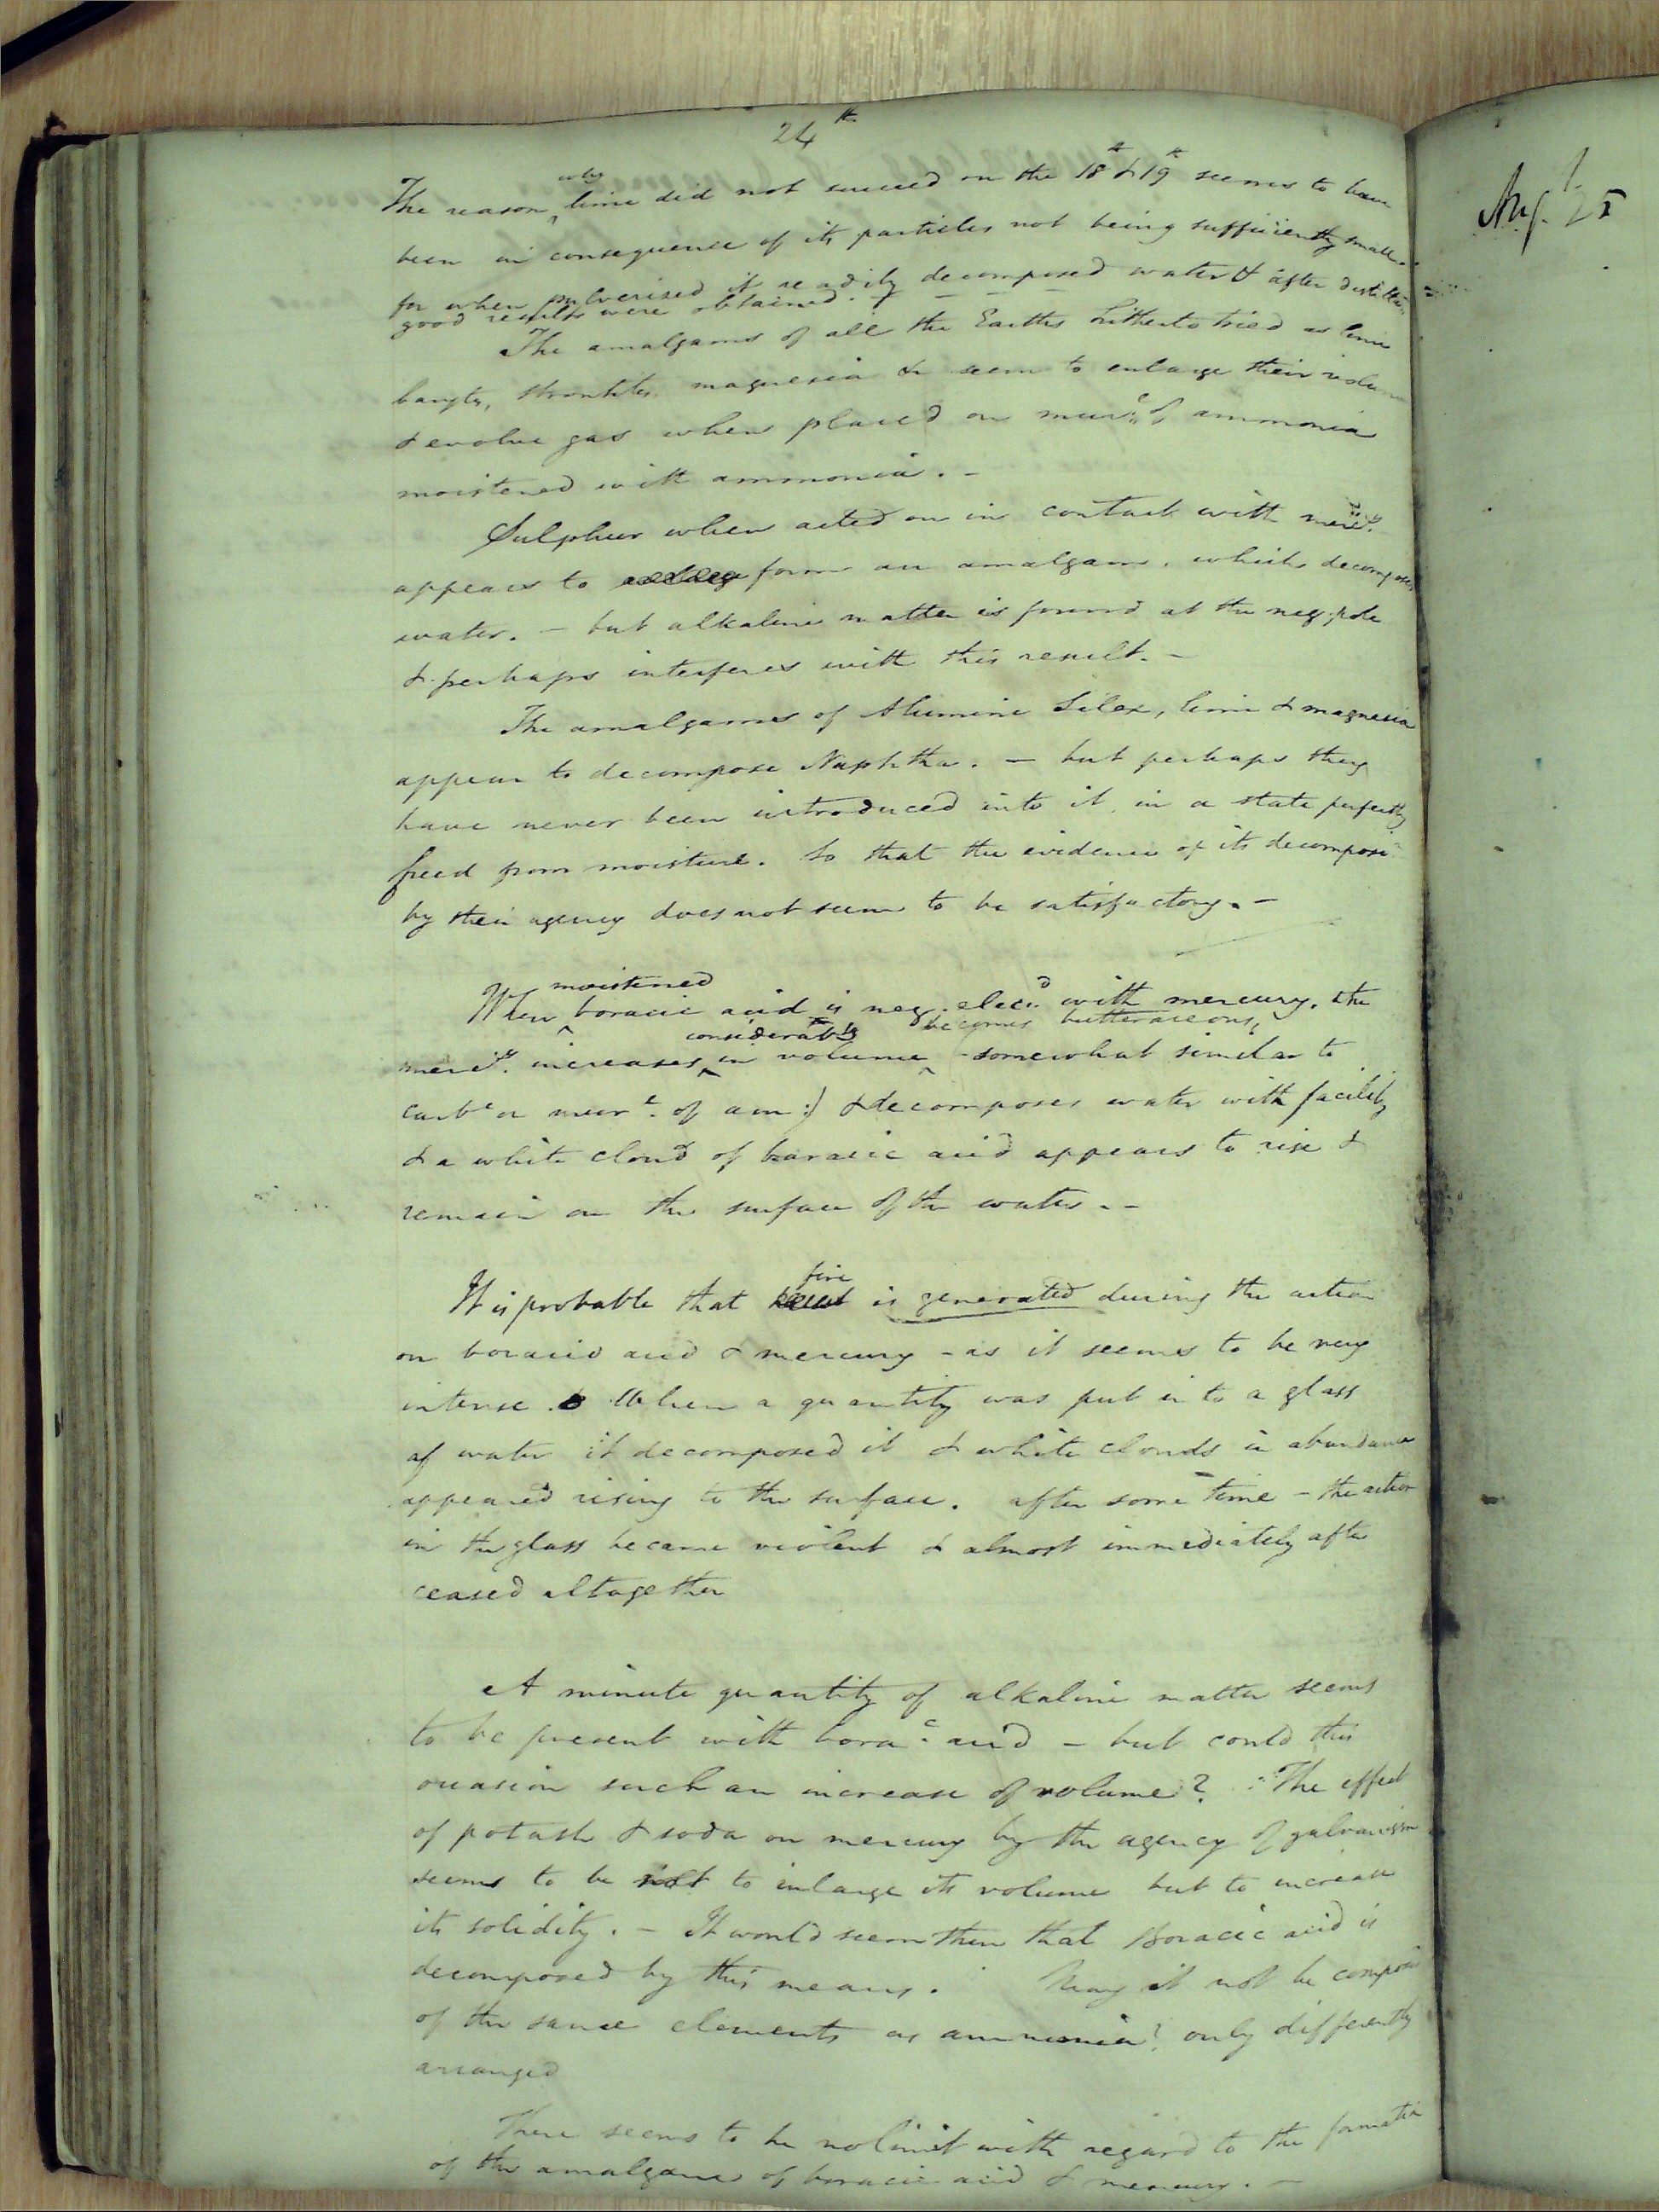 24th
The reason why lime did not succeed on the 18th & 19th seems to have
been in consequence of its particles not being sufficiently small.
for when pulverised it readily decomposed water & after distillation
good results were obtained. -
The amalgams of all the Earths hitherto tried as lime
barytes, strontites magnesia &c seem to enlarge their volume
& evolve gas when placed on mure. of ammonia
moistened with ammonia. -
Sulphur when acted on in contact with mercy.
appears to form an amalgam, which decomposes
water. - but alkaline matter is found at the neg. pole
& perhaps interferes with this result. -
The amalgams of Alumine Silex, lime & magnesia
appear to decompose Naphtha. - but perhaps they
have never been introduced into it in a state perfectly
freed from moisture. So that the evidence of its decomposn
by their agency does not seem to be satisfactory. -
When moistened boracic acid is neg. elecd. with mercury. the
mercy. increases considerably in volume becomes butteraceous, somewhat similar to
carbe or mure. of am:) & decomposes water with facility
& a white cloud of boracic acid appears to rise &
remain on the surface of the water. -
It is probable that fire is generated during the action
on boracic acid & mercury - as it seems to be very
intense. When a quantity was put into a glass
of water it decomposed it & white clouds in abundance
appeared rising to the surface. after some time - the action
in the glass became violent & almost immediately after
ceased altogether
A minute quantity of alkaline matter seems
to be present with borac. acid - but could this
occasion such an increase of volume? The effect
of potash & soda on mercury by the agency of galvanism
seems to be not to inlarge its volume but to increase
its solidity. - It would seem then that Boracic acid is
decomposed by this means. May it not be composed
of the same elements as ammonia? only differently
arranged
There seems to be no limit with regard to the formation
of the amalgam of boracic acid & mercury. -
Augt. 25